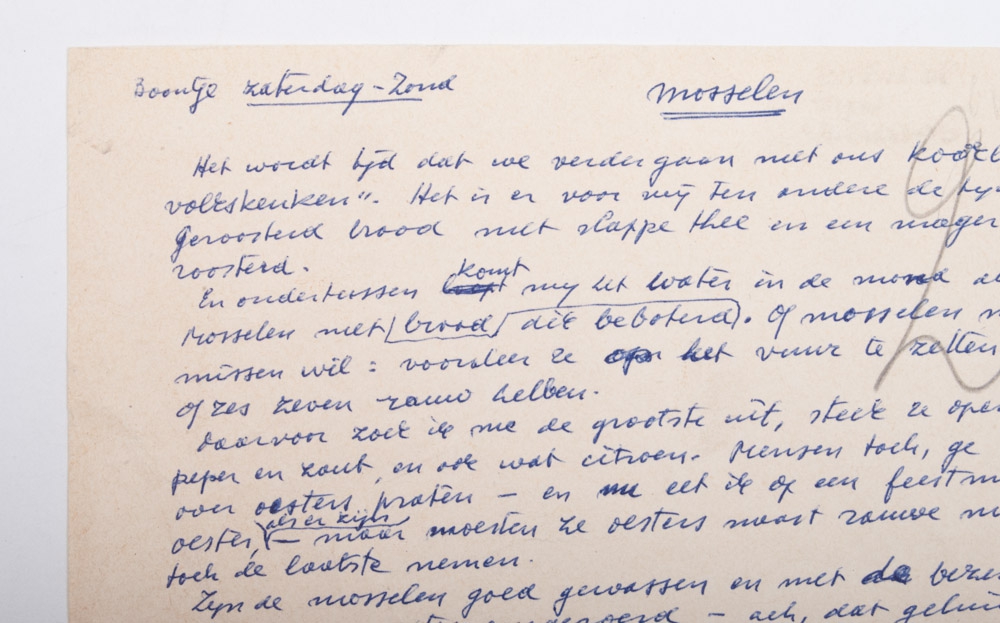 Boontje zaterdag - Zond
Mosselen
Het wordt tijd dat we verder gaan met ons
volkskeuken". Het is er voor mij ten andere de
Geroosterd brood met slappe thee en een mager
roosterd.
En ondertussen komt mij het water in de mond
Mosselen met brood (dik beboterd). Of mosselen
missen wil : vooraleer ze op het vuur te zetten
of zes zeven rauw hebben.
Daarvoor zoek ik me de grootste uit, steek ze open
peper en zout, en ook wat citroen. Mensen toch, ge
over oesters praten — en eet ik op een feestm
oester, als er zijn — maar moesten ze oesters naast rauwe
toch de laatste nemen.
Zijn de mosselen goed gewassen en met de
— ach, dat